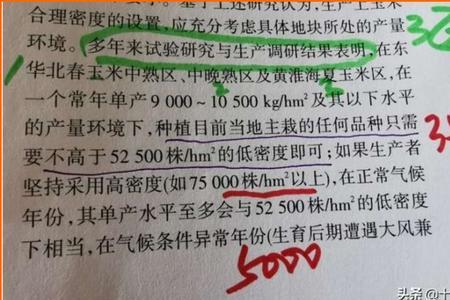 合理密度的设置,应充分考虑具体地块所处的产量
环境。多年来试验研究与生产调研结果表明,在东
华北春玉米中熟区、中晚熟区及黄淮海夏玉米区,在
一个常年单产 9 000~10 500 kg/hm²及其以下水平
的产量环境下,种植目前当地主栽的任何品种只需
要不高于 52 500 株/hm²的低密度即可;如果生产者
坚持采用高密度(如 75 000 株/hm²以上),在正常气候
年份,其单产水平至多会与 52 500 株/hm²的低密度
下相当,在气候条件异常年份(生育后期遭遇大风兼
1
2
3
5000
头条@十